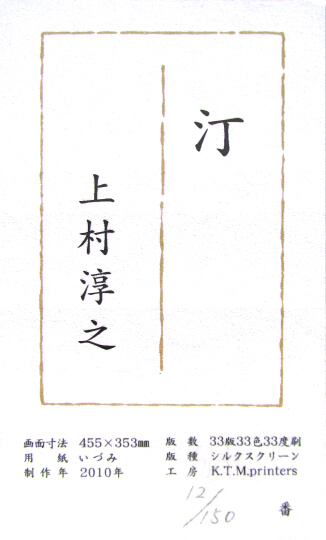 汀
上村淳之
画面寸法 455×353㎜ 版数 33版33色33度刷
用紙 いづみ 版種 シルクスクリーン
制作年 2010年 工房 K.T.M.printers
12/150 番